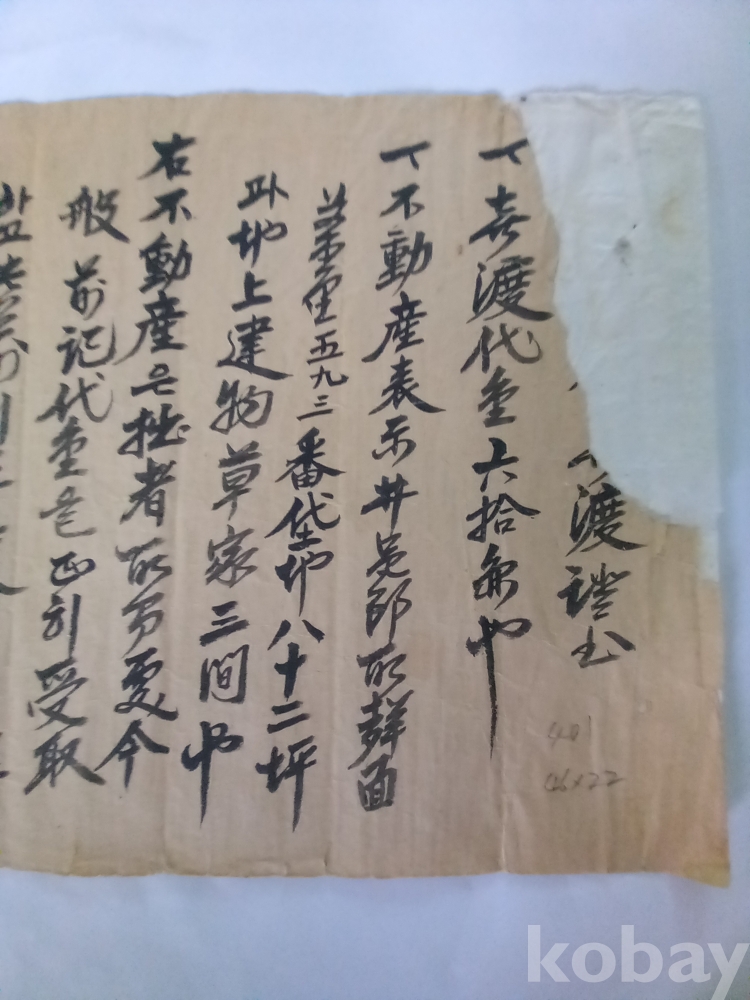 渡證書
一 賣渡代金六拾圓也
一 不動産表示井邑郡所聲面
五九三番垈地八十二坪
地上建物草家三間也
右不動産은拙者所有더니今
般前記代金을正히受取
401
46×22
kobay